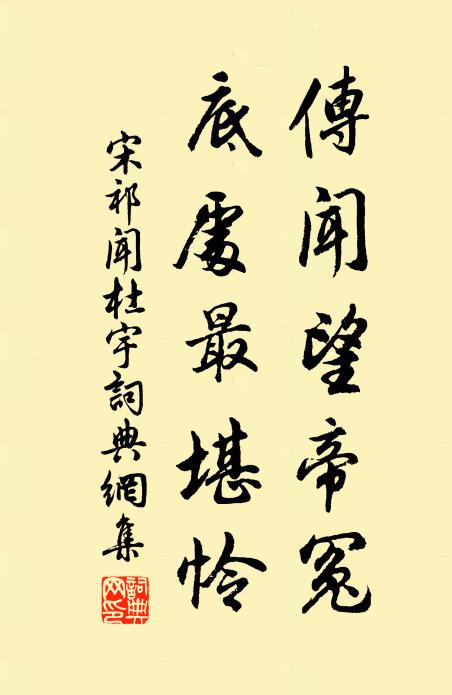 傳聞望帝冤
底處最堪怜
宋祁聞杜宇詞典網集
詞典網印